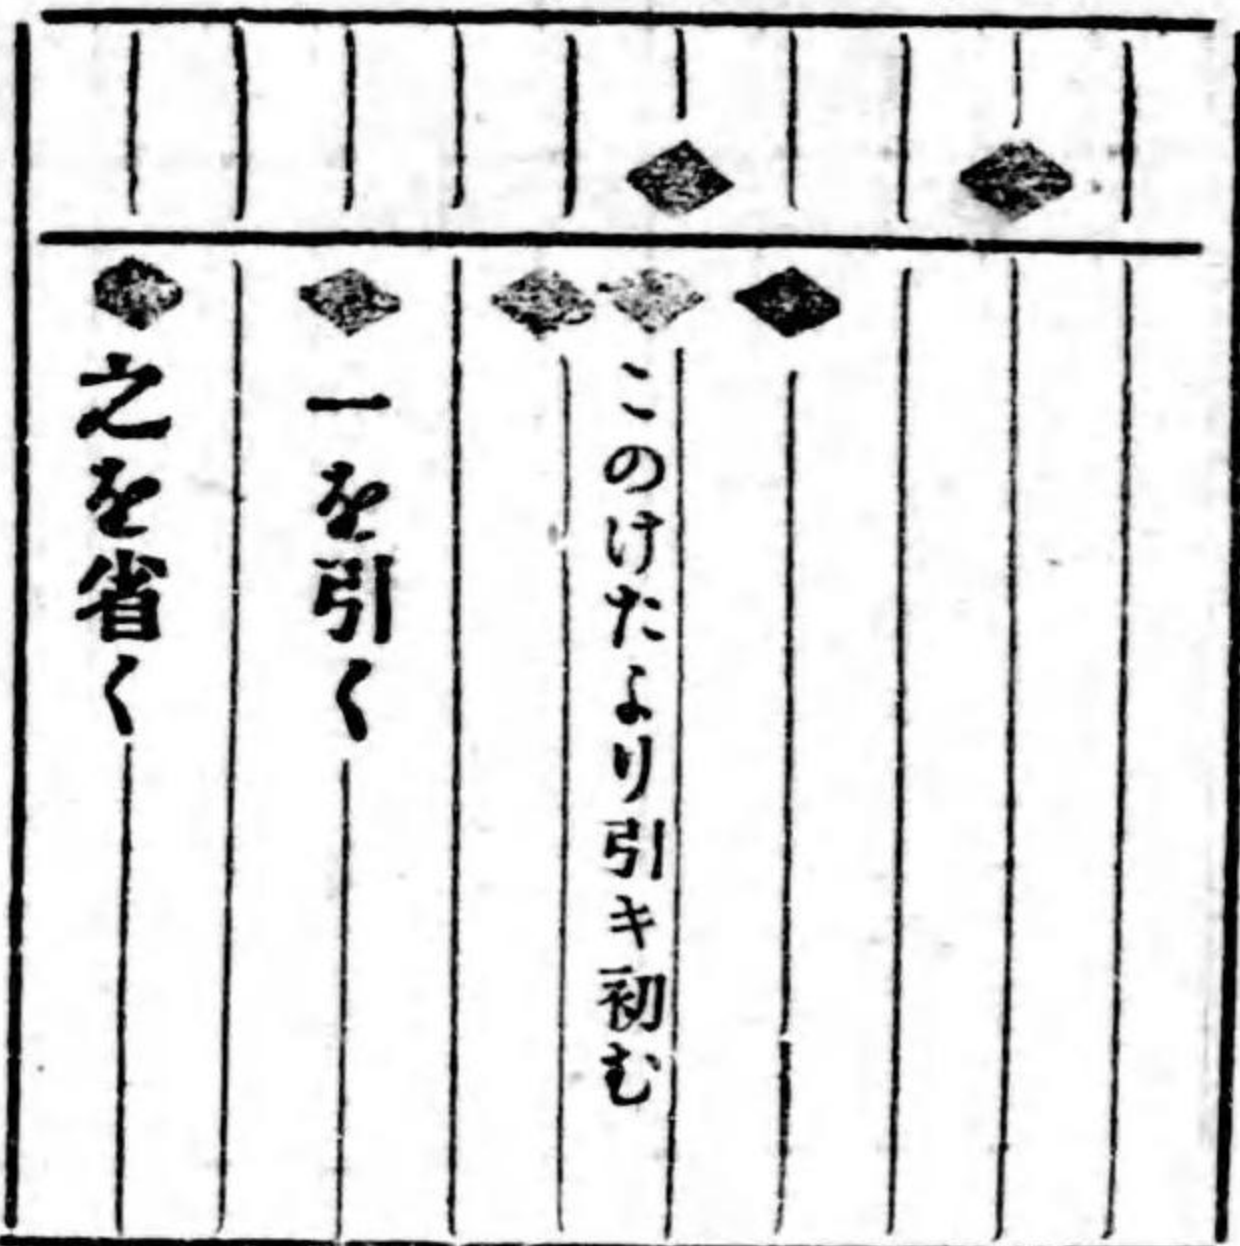 このけたより引キ初む
一を引く
之を省く